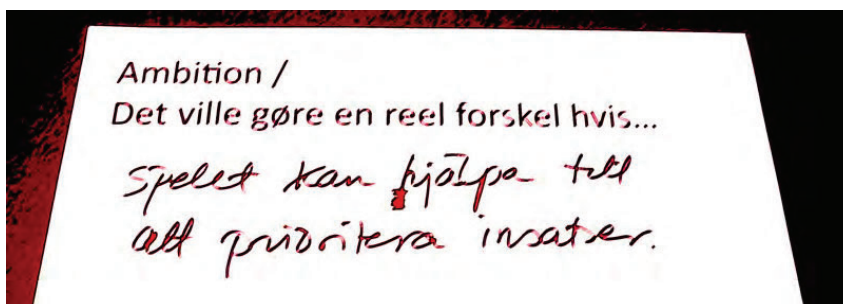 Ambition /
Det ville gøre en reel forskel hvis...
spelet kan hjälpa till
att prioritera insatser.